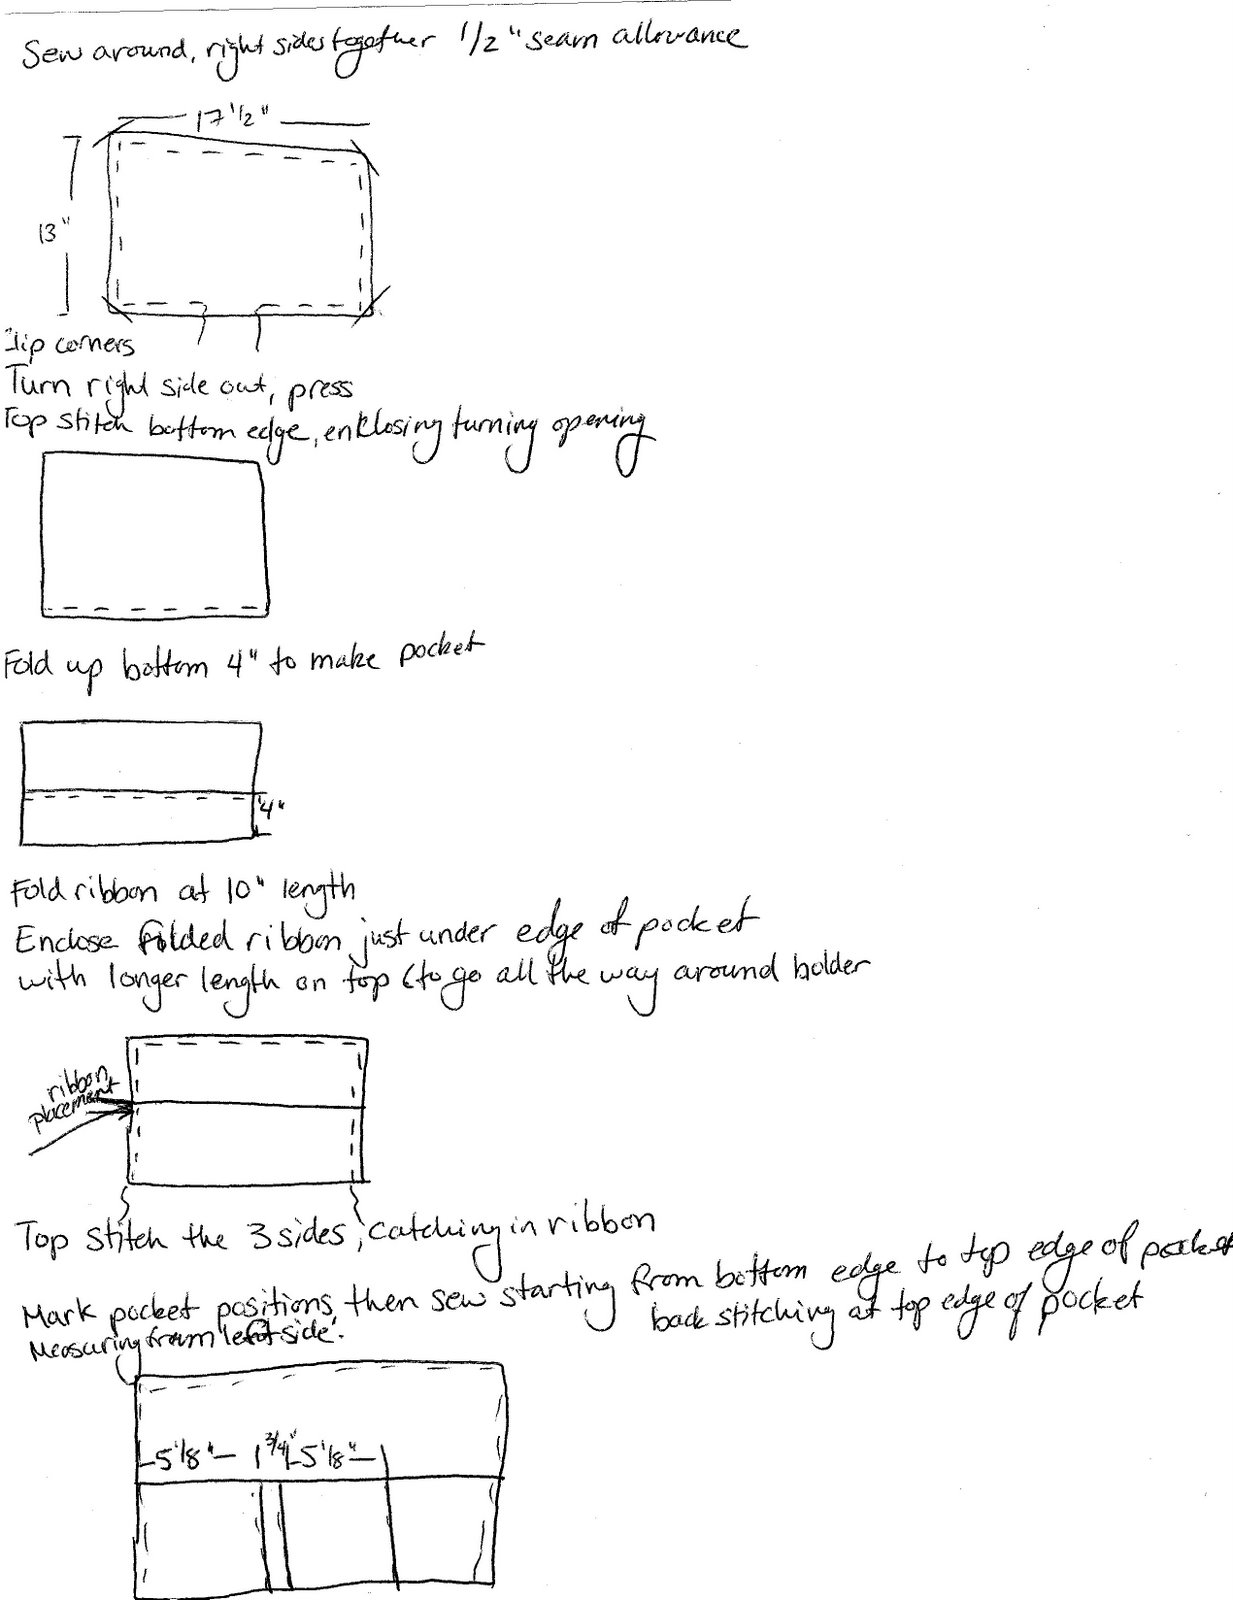 Sew around, right sides together 1/2" seam allowance
17 1/2"
13"
Clip corners
Turn right side out, press
Top stitch bottom edge, enklosing turning opening
Fold up bottom 4" to make pocket
4"
Fold ribbon at 10" length
Enclose folded ribbon just under edge of pocket
with longer length on top (to go all the way around holder
ribbon
placement
Top stitch the 3 sides, catching in ribbon
Mark pocket positions, then sew starting from bottom edge to top edge of pocket
back stitching at top edge of pocket
Measuring from left side:
5 1/8" 1 3/4" 5 1/8"